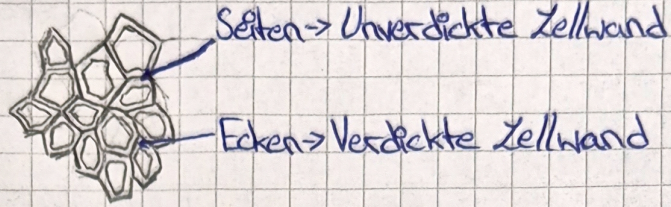 Seiten→ Unverdickte Zellwand
Ecken→ Verdickte Zellwand